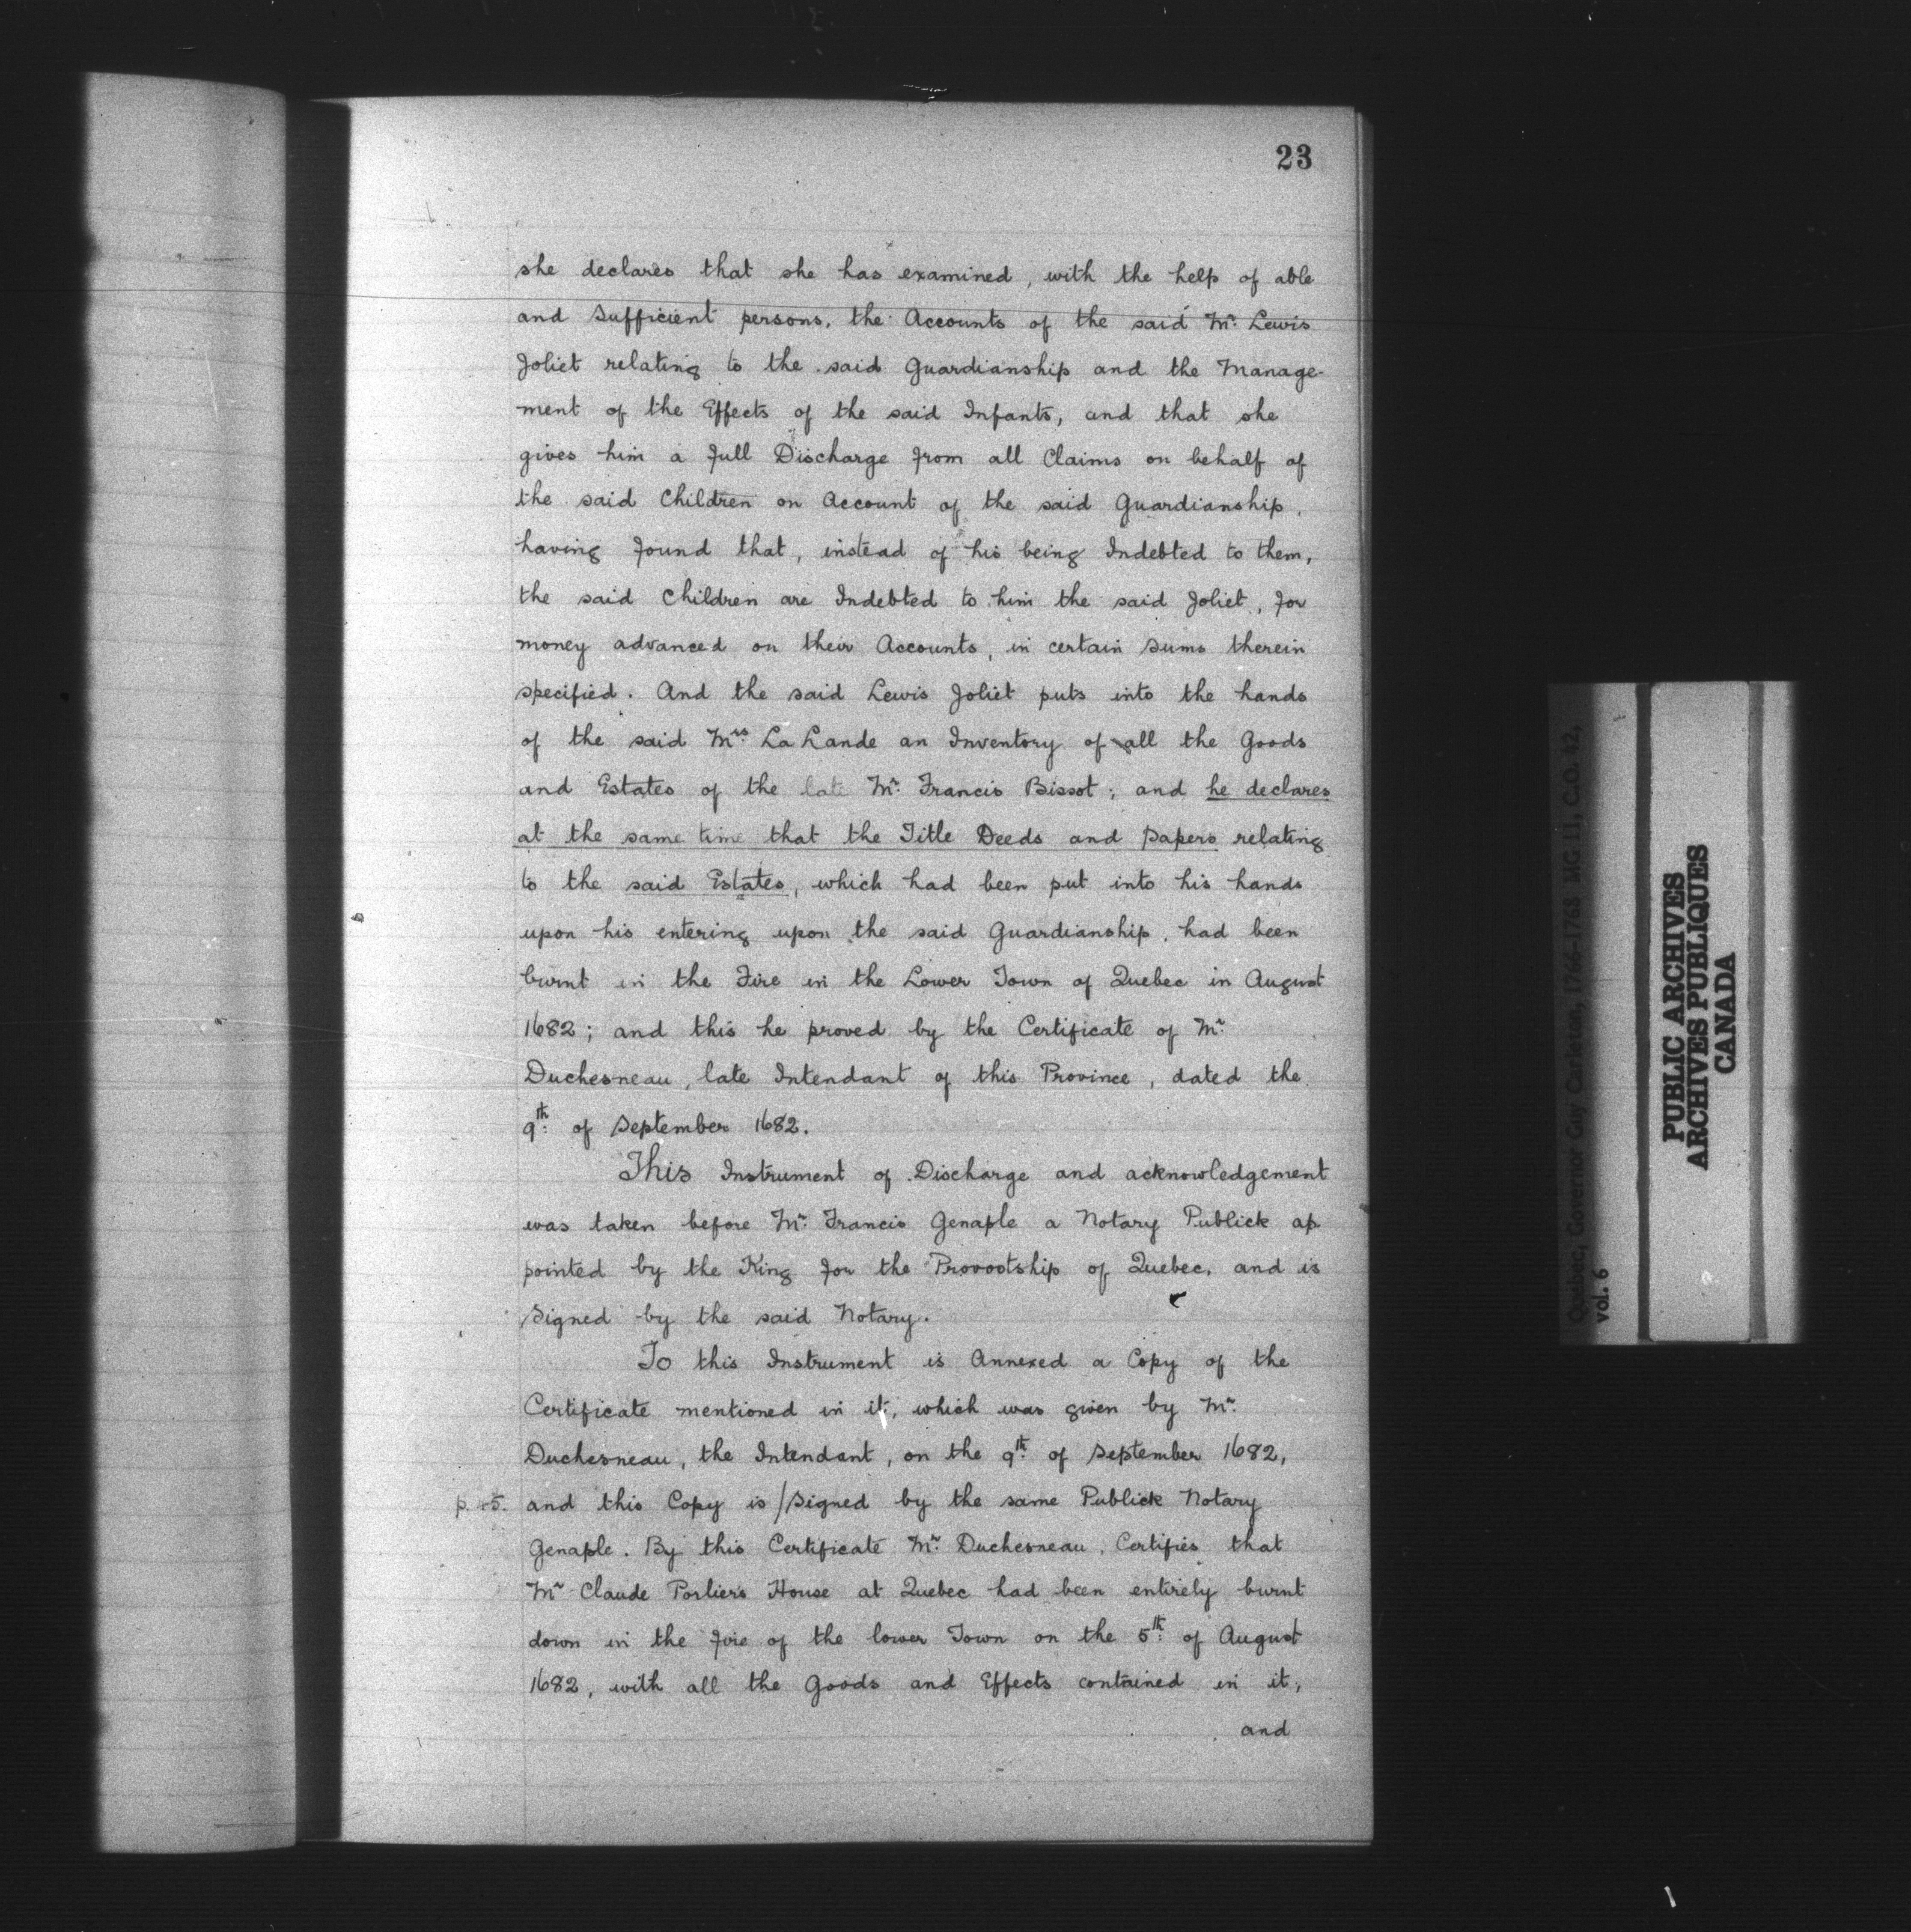 23
she declares that she has examined, with the help of able
and Sufficient persons, the Accounts of the said Mr. Lewis
Joliet relating to the said Guardianship and the Manage-
ment of the Effects of the said Infants, and that she
gives him a full Discharge from all Claims on behalf of
the said Children on Account of the said Guardianship,
having found that, instead of his being Indebted to them,
the said Children are Indebted to him the said Joliet, for
money advanced on their Accounts, in certain Sums therein
specified. And the said Lewis Joliet puts into the hands
of the said Mrs. La Lande an Inventory of all the Goods
and Estates of the late Mr. Francis Bissot; and he declares
at the same time that the Title Deeds and papers relating
to the said Estates, which had been put into his hands
upon his entering upon the said Guardianship, had been
burnt in the Fire in the Lower Town of Quebec in August
1682; and this he proved by the Certificate of Mr.
Duchesneau, late Intendant of this Province, dated the
9th. of September 1682.
This Instrument of Discharge and acknowledgement
was taken before Mr. Francis Genaple a Notary Publick ap-
pointed by the King for the Provostship of Quebec, and is
Signed by the said Notary.
To this Instrument is Annexed a Copy of the
Certificate mentioned in it, which was given by Mr.
Duchesneau, the Intendant, on the 9th. of September 1682,
and this Copy is /Signed by the same Publick Notary
Genaple. By this Certificate Mr. Duchesneau, Certifies that
Mr Claude Porlier's House at Quebec had been entirely burnt
down in the fire of the lower Town on the 5th. of August
1682, with all the Goods and Effects contained in it,
and
Quebec, Governor Guy Carleton, 1766-1768 MG 11, C.O. 42,
vol. 6
PUBLIC ARCHIVES
ARCHIVES PUBLIQUES
CANADA